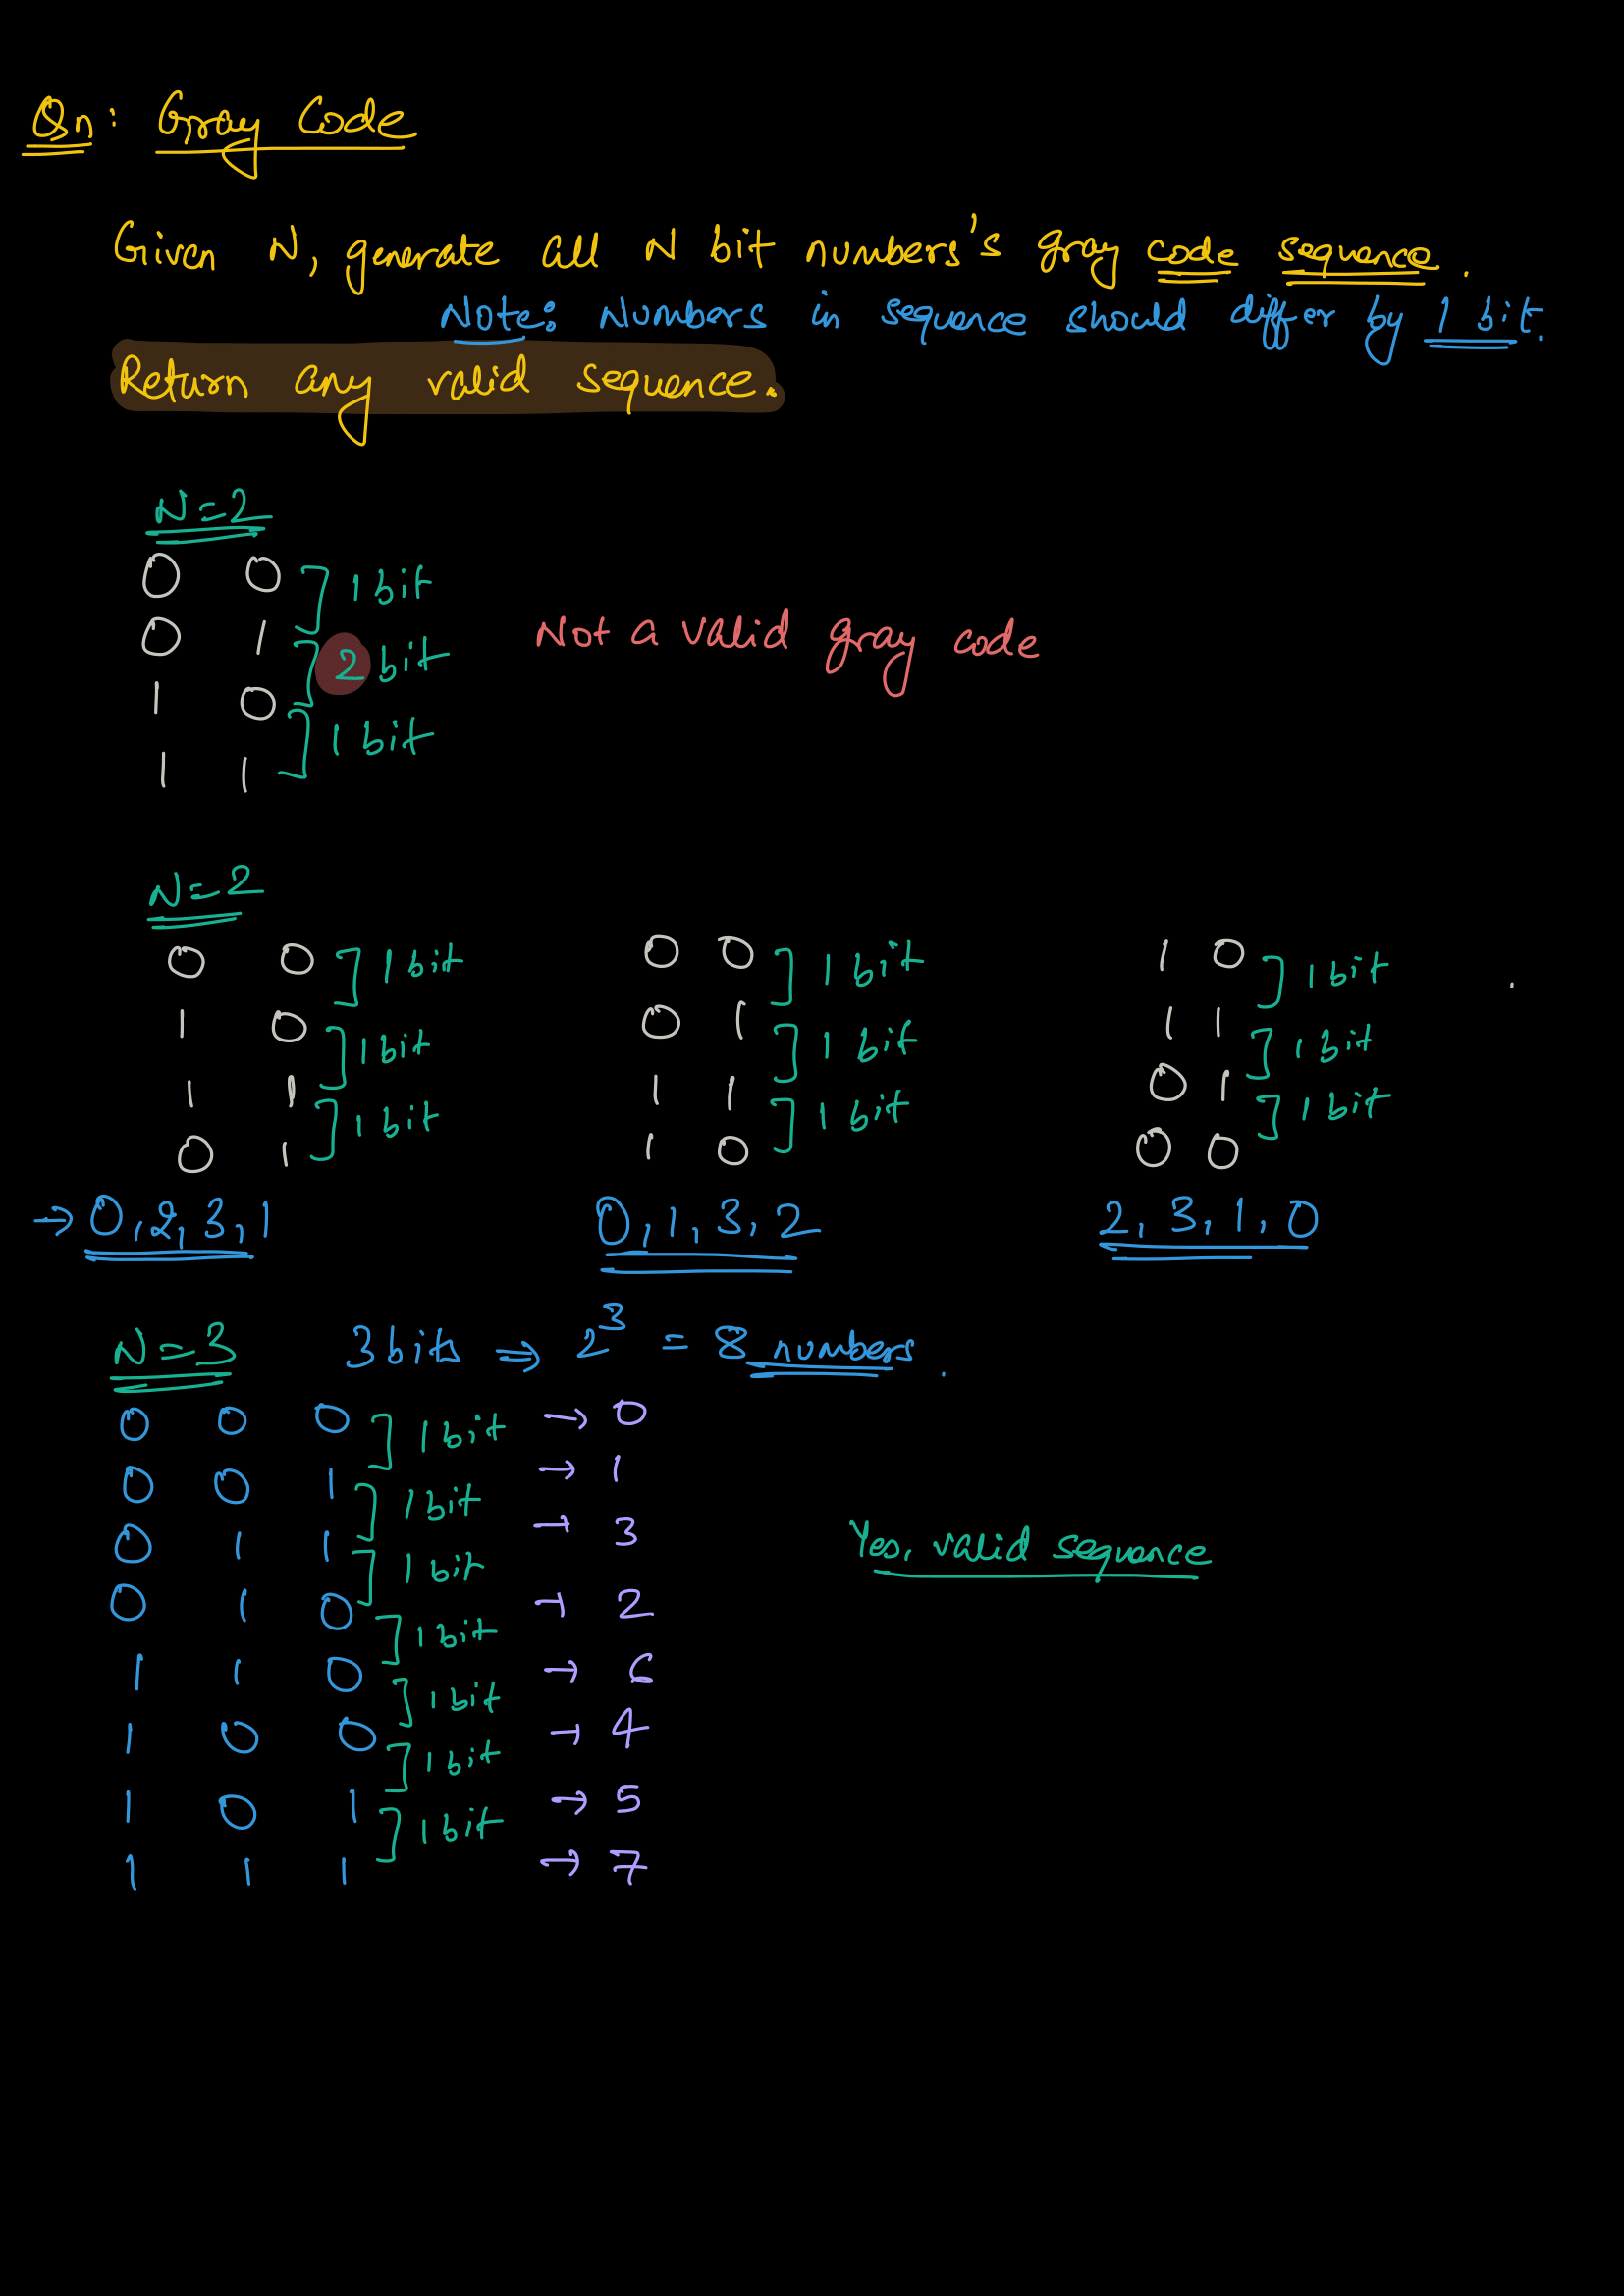 Qn: Gray Code
Given N, generate all N bit numbers's gray code sequence.
Note: Numbers in sequence should differ by 1 bit.
Return any valid sequence.
N=2
0 0
] 1 bit
0 1
] 2 bit
1 0
] 1 bit
1 1
Not a valid gray code
N=2
0 0
] 1 bit
1 0
] 1 bit
1 1
] 1 bit
0 1
→ 0, 2, 3, 1
0 0
] 1 bit
0 1
] 1 bit
1 1
] 1 bit
1 0
0, 1, 3, 2
1 0
] 1 bit
1 1
] 1 bit
0 1
] 1 bit
0 0
2, 3, 1, 0
N=3 3 bits ⇒ 2³ = 8 numbers.
0 0 0 → 0
] 1 bit
0 0 1 → 1
] 1 bit
0 1 1 → 3
] 1 bit
0 1 0 → 2
] 1 bit
1 1 0 → 6
] 1 bit
1 0 0 → 4
] 1 bit
1 0 1 → 5
] 1 bit
1 1 1 → 7
Yes, valid sequence